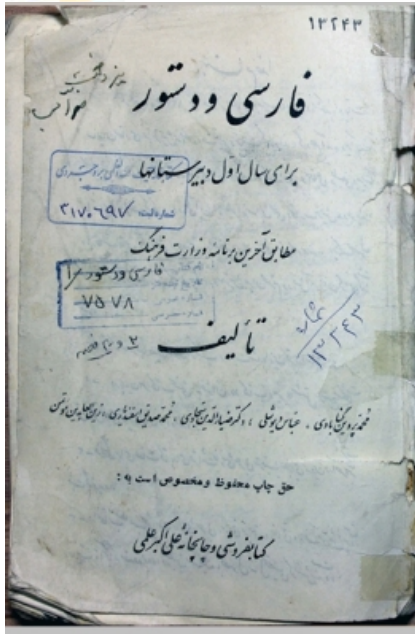 ۱۳۲۴۳
فارسی و دستور
برای سال اوّل دبیرستانها
شماره ثبت:
۳۱۷۰۶۹۷
مطابق آخرین برنامه وزارت فرهنگ
فارسی و دستور
۷۵۷۸
تألیف
شماره
۱۳۲۴۳
محمد پروین گنابادی، عباس شوقی، دکتر ضیاءالدین سجادی، محمد صدیق اسفندیاری، زین العابدین مؤتمن
حق چاپ محفوظ و مخصوص است به:
کتابفروشی و چاپخانهٔ علی اکبر علمی